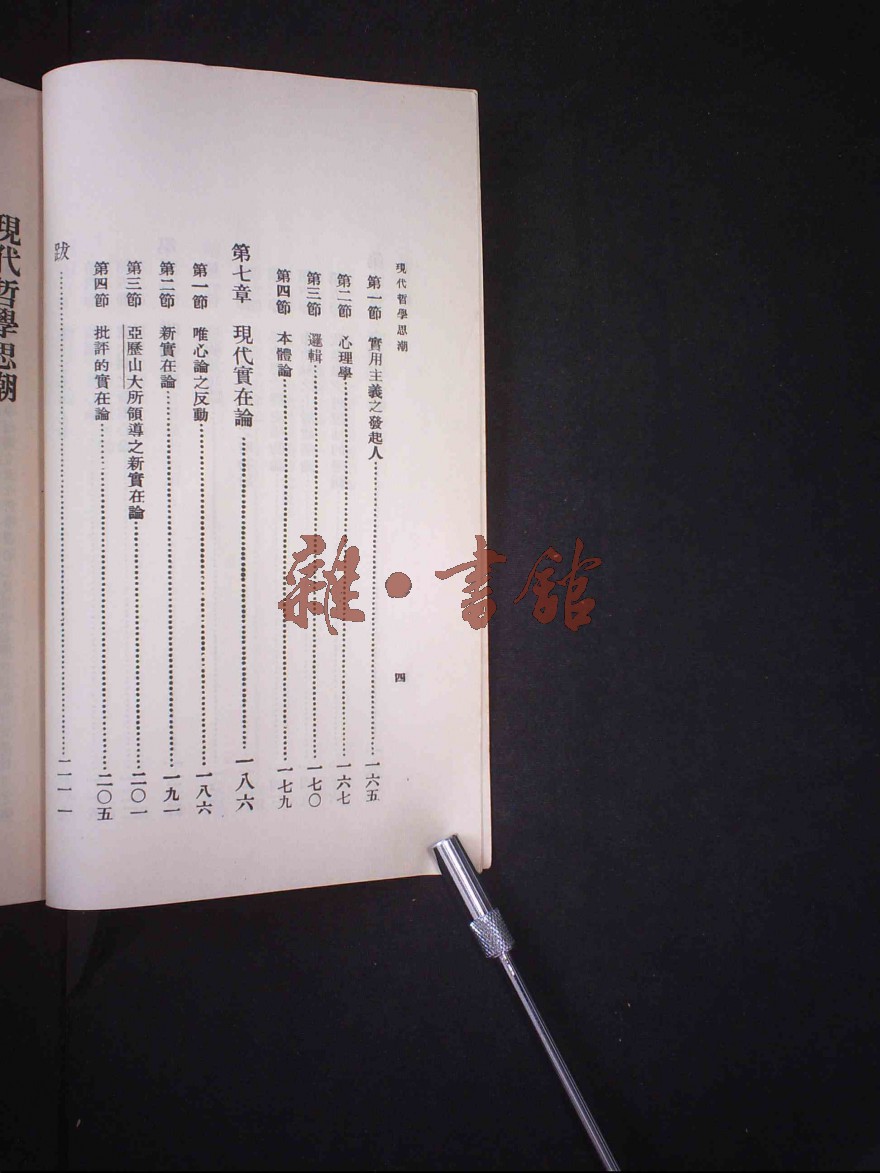 現代哲學思潮
四
第一節 實用主義之發起人⋯⋯⋯⋯一六五
第二節 心理學⋯⋯⋯⋯一六七
第三節 邏輯⋯⋯⋯⋯一七〇
第四節 本體論⋯⋯⋯⋯一七九
第七章 現代實在論⋯⋯⋯⋯一八六
第一節 唯心論之反動⋯⋯⋯⋯一八六
第二節 新實在論⋯⋯⋯⋯一九一
第三節 亞歷山大所領導之新實在論⋯⋯⋯⋯二〇一
第四節 批評的實在論⋯⋯⋯⋯二〇五
跋⋯⋯⋯⋯二一一
現代哲學思潮
雜·書館